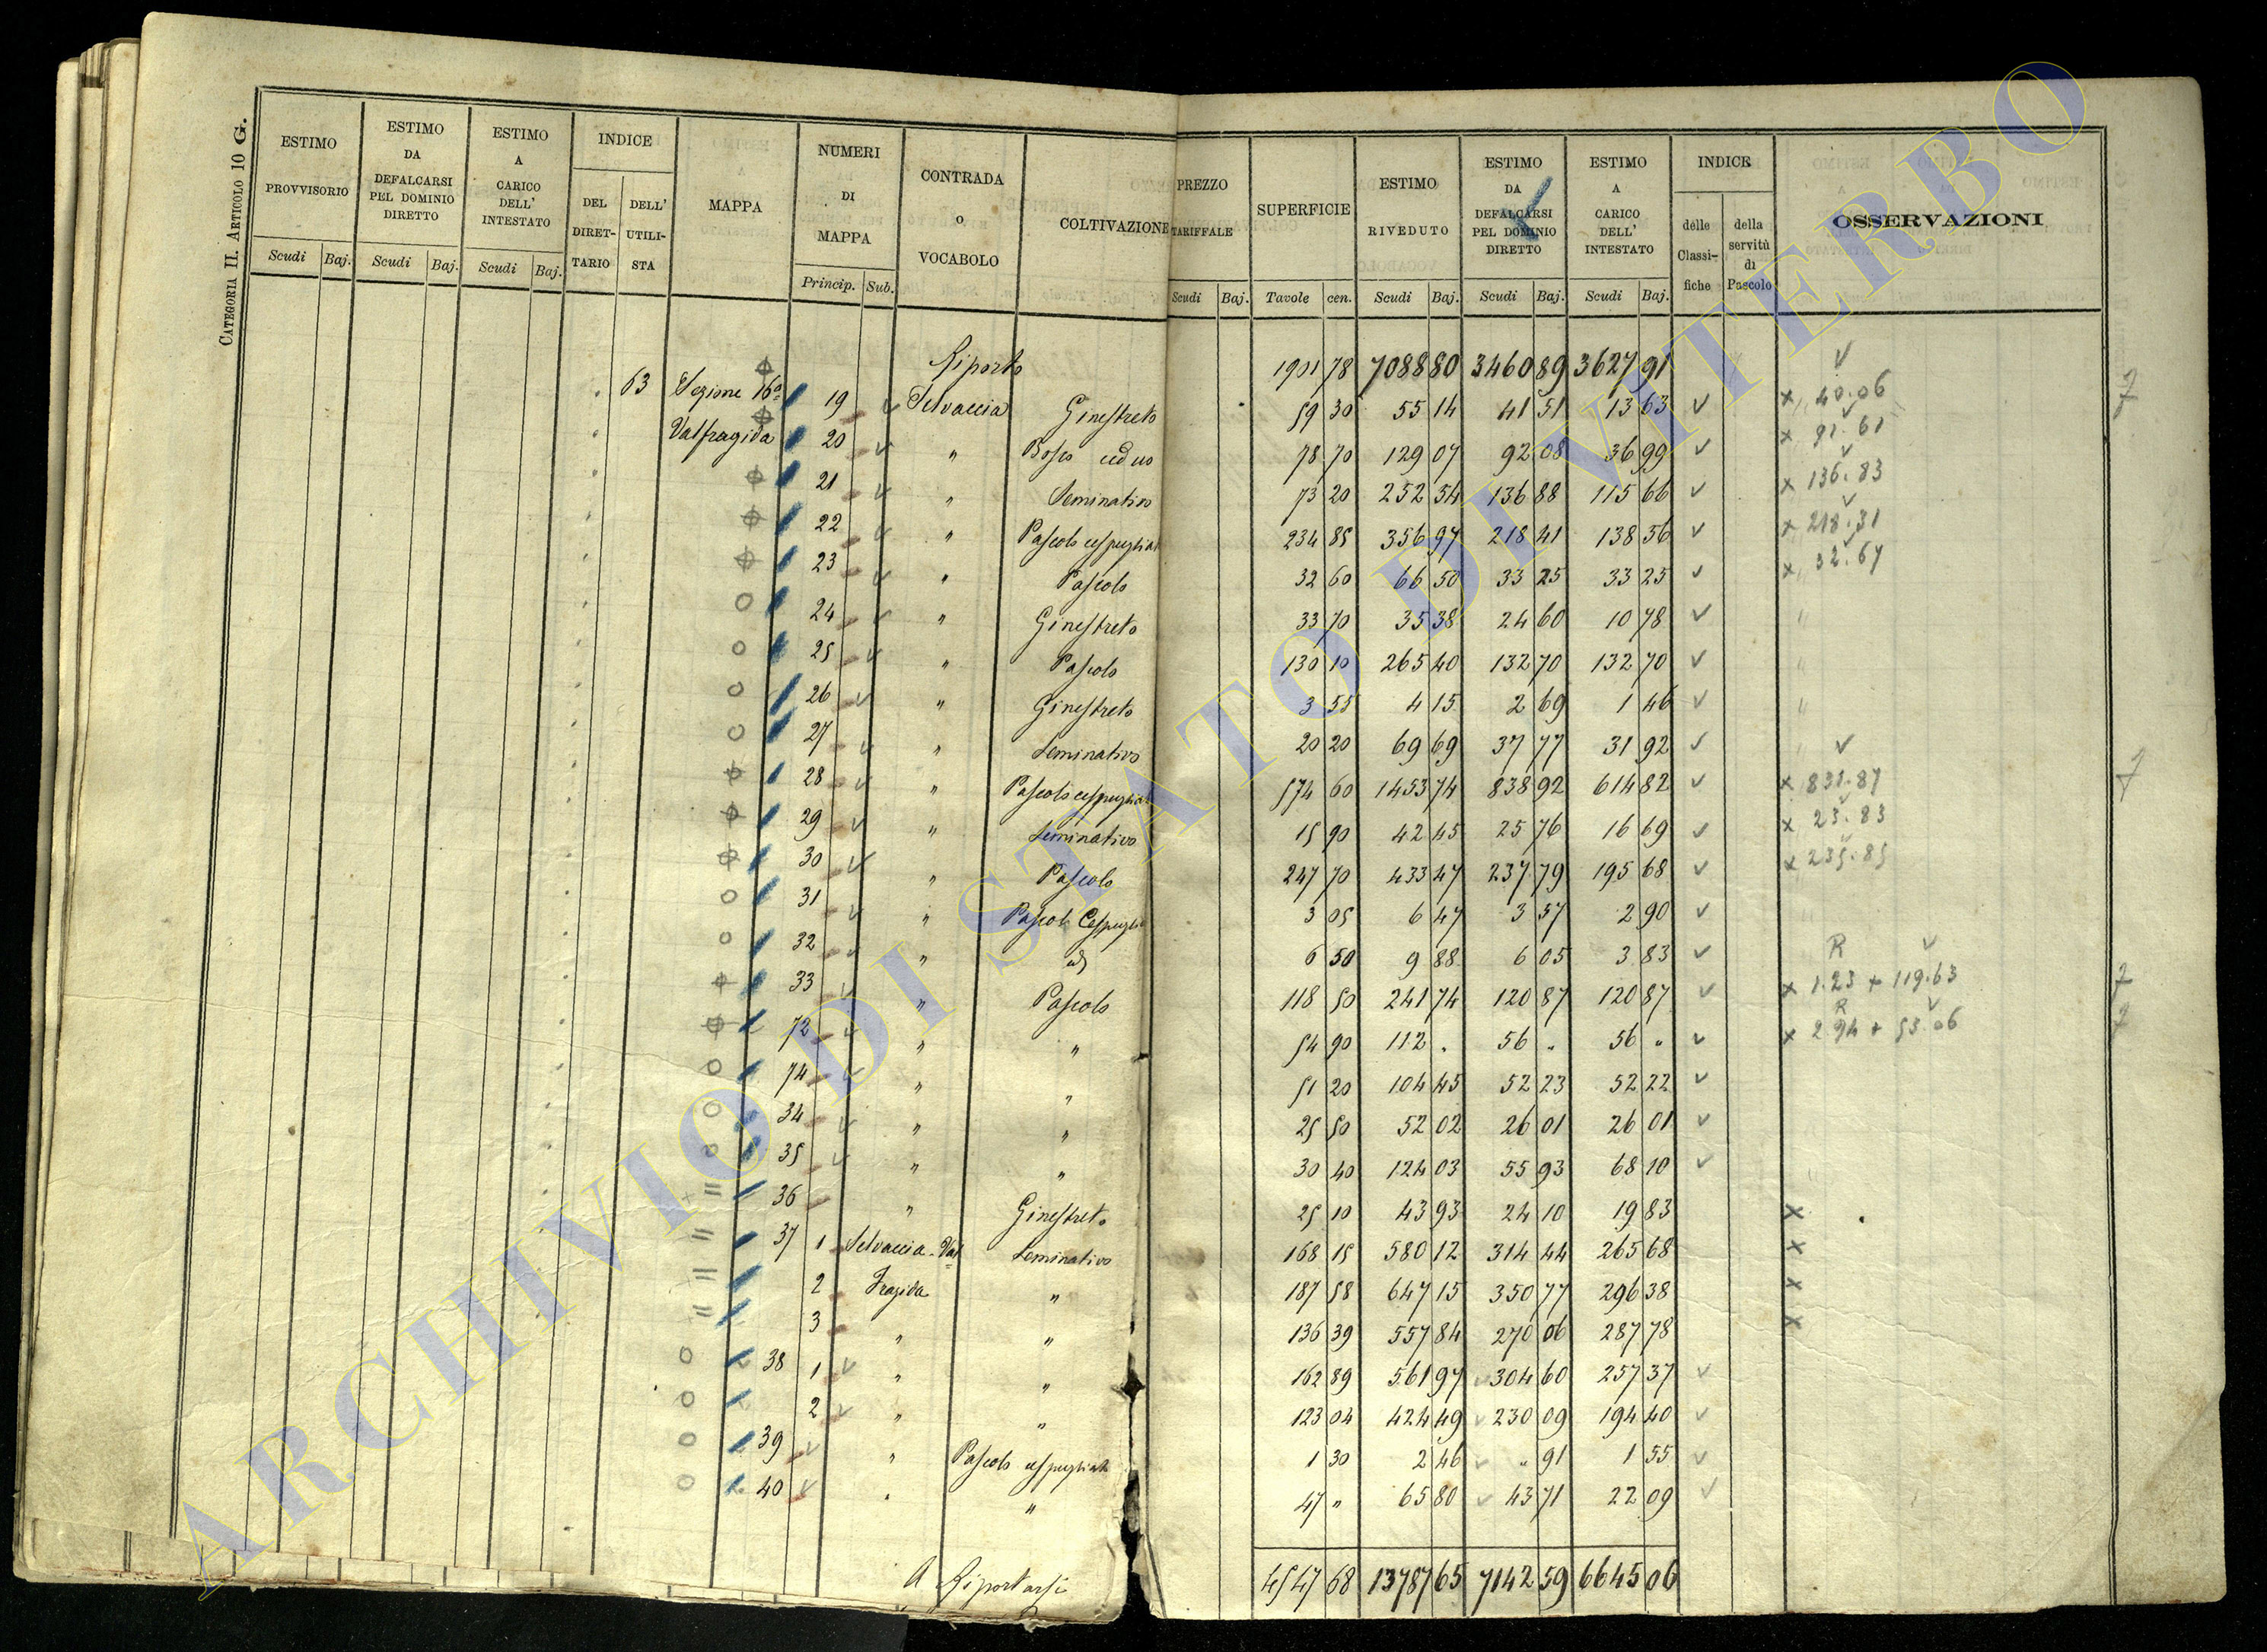 CATEGORIA II. ARTICOLO 10 G.
ESTIMO PROVVISORIO Scudi Baj.
ESTIMO DA DEFALCARSI PEL DOMINIO DIRETTO Scudi Baj.
ESTIMO A CARICO DELL' INTESTATO Scudi Baj.
INDICE DEL DIRETTARIO DELL' UTILISTA
MAPPA
NUMERI DI MAPPA Princip. Sub.
CONTRADA o VOCABOLO
COLTIVAZIONE
PREZZO TARIFFALE Scudi Baj.
SUPERFICIE Tavole cen.
ESTIMO RIVEDUTO Scudi Baj.
ESTIMO DA DEFALCARSI PEL DOMINIO DIRETTO Scudi Baj.
ESTIMO A CARICO DELL' INTESTATO Scudi Baj.
INDICE delle Classifiche della servitù di Pascolo
OSSERVAZIONI
Riporto 1901 78 7088 80 3460 89 3627 91
63 Sezione 16a 19 Selvaccia Ginestreto 59 30 55 14 41 51 13 63 x 40.06 7
Valfragida 20 " Bosco ceduo 78 70 129 07 92 08 36 99 x 91.61
21 " Seminativo 73 20 252 54 136 88 115 66 x 136.83
22 " Pascolo cespugliat 234 85 356 97 218 41 138 56 x 218.31
23 " Pascolo 32 60 66 50 33 25 33 25 x 32.67
24 " Ginestreto 33 70 35 38 24 60 10 78 "
25 " Pascolo 130 10 265 40 132 70 132 70 "
26 " Ginestreto 3 55 4 15 2 69 1 46 "
27 " Seminativo 20 20 69 69 37 77 31 92 "
28 " Pascolo cespugliat 574 60 1453 74 838 92 614 82 x 831.87 7
29 " Seminativo 15 90 42 45 25 76 16 69 x 23.83
30 " Pascolo 247 70 433 47 237 79 195 68 x 235.85
31 " Pascolo Cespugli 3 05 6 47 3 57 2 90
32 " id 6 50 9 88 6 05 3 83 R
33 " Pascolo 118 50 241 74 120 87 120 87 x 1.23 + 119.63 7
R
72 " " 54 90 112 " 56 " 56 " x 2.94 + 53.06 7
74 " " 51 20 104 45 52 23 52 22
34 " " 25 50 52 02 26 01 26 01
35 " " 30 40 124 03 55 93 68 10
36 " Ginestreto 25 10 43 93 24 10 19 83 x
37 1 Selvaccia-Val Seminativo 168 15 580 12 314 44 265 68 x
2 Fragida " 187 58 647 15 350 77 296 38 x
3 " " 136 39 557 84 270 06 287 78 x
38 1 " " 162 89 561 97 304 60 257 37
2 " " 123 04 424 49 230 09 194 40
39 " Pascolo cespugliato 1 30 2 46 " 91 1 55
40 " " 47 " 65 80 43 71 22 09
A Riportarsi 4547 68 13787 65 7142 59 6645 06
ARCHIVIO DI STATO DI VITERBO